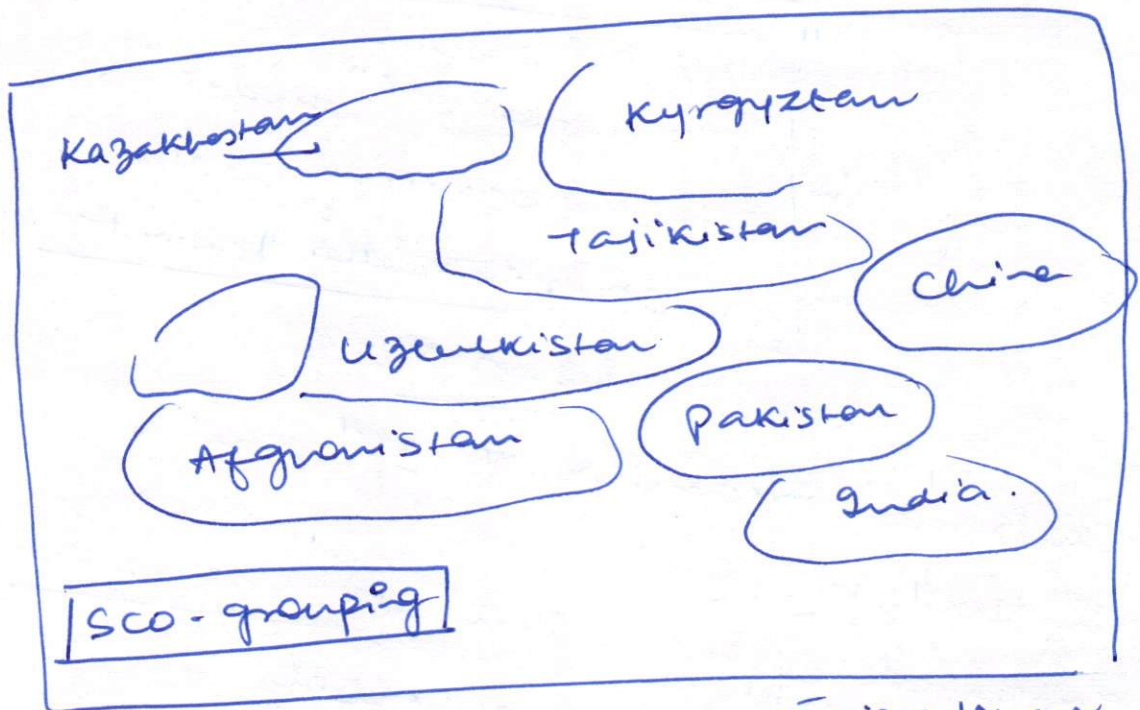 Kazakhostan
Kyrgyztan
Tajikistan
China
Uzbekistan
Pakistan
Afghanistan
India.
SCO - grouping